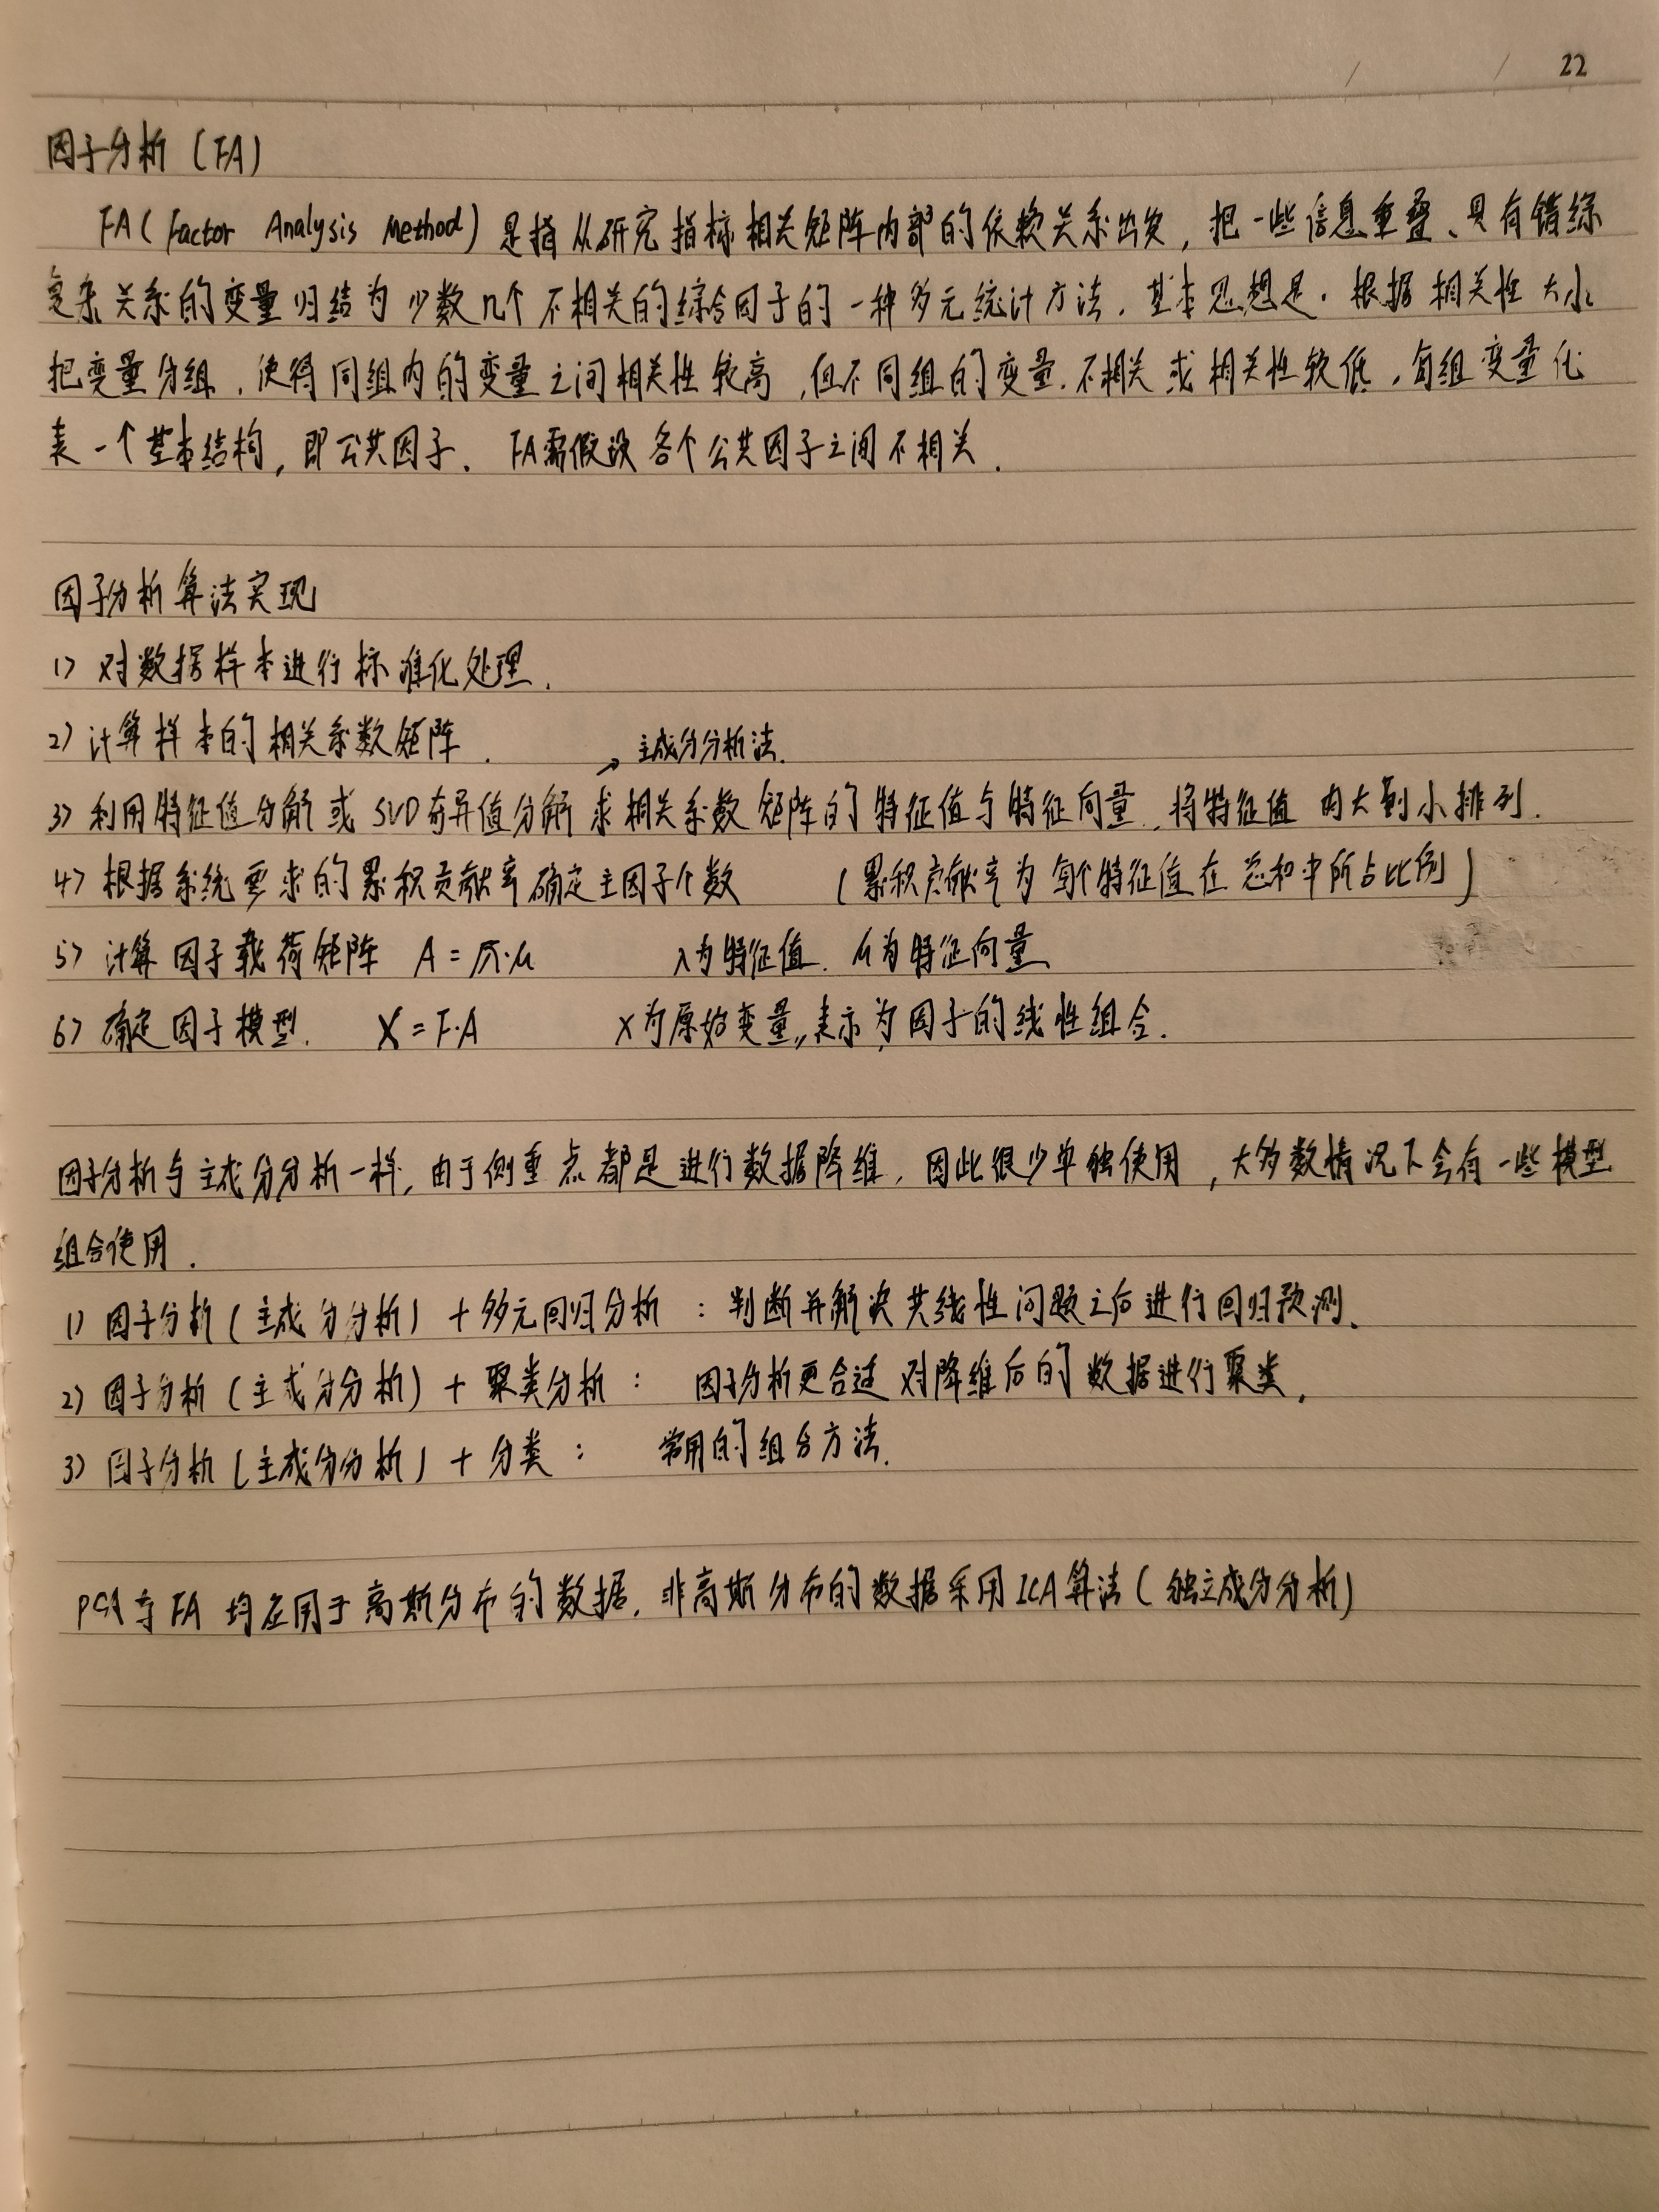 22
因子分析 (FA)
FA ( Factor Analysis Method ) 是指从研究指标相关矩阵内部的依赖关系出发, 把一些信息重叠、具有错综
复杂关系的变量归结为少数几个不相关的综合因子的一种多元统计方法. 基本思想是. 根据相关性大小
把变量分组, 使得同组内的变量之间相关性较高, 但不同组的变量. 不相关或相关性较低, 每组变量代
表一个基本结构, 即公共因子. FA需假设各个公共因子之间不相关.
因子分析算法实现
1) 对数据样本进行标准化处理.
2) 计算样本的相关系数矩阵.
→ 主成分分析法.
3) 利用特征值分解或SVD奇异值分解求相关系数矩阵的特征值与特征向量, 将特征值由大到小排列.
4) 根据系统要求的累积贡献率确定主因子个数 (累积贡献率为每个特征值在总和中所占比例)
5) 计算因子载荷矩阵 A = √λ·μ λ为特征值. μ为特征向量、
6) 确定因子模型. X = F·A X为原始变量, 表示为因子的线性组合.
因子分析与主成分分析一样, 由于侧重点都是进行数据降维, 因此很少单独使用, 大多数情况下会有一些模型
组合使用.
1) 因子分析 (主成分分析) + 多元回归分析 : 判断并解决共线性问题之后进行回归预测、
2) 因子分析 (主成分分析) + 聚类分析 : 因子分析更合适对降维后的数据进行聚类,
3) 因子分析 (主成分分析) + 分类 : 常用的组合方法.
PCA与FA均应用于高斯分布的数据, 非高斯分布的数据采用ICA算法 (独立成分分析)